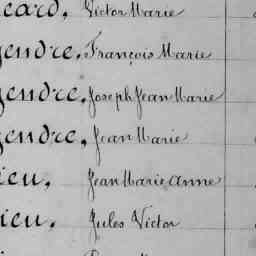 card, Victor Marie
gendre, François Marie
gendre, Joseph Jean Marie
gendre, Jean Marie
ieu, Jean Marie Anne
ieu, Jules Victor